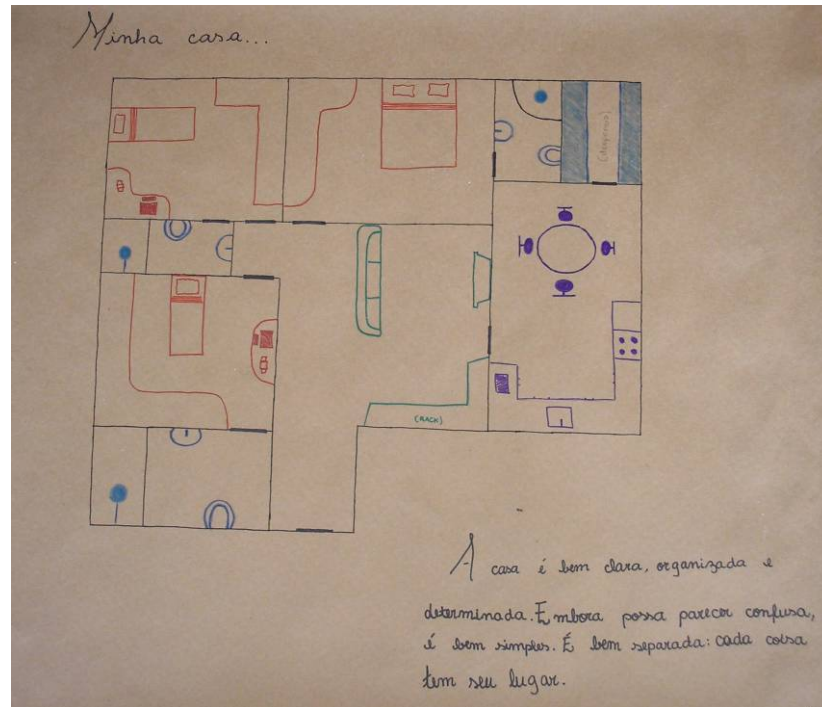 Minha casa...
(despensa)
(RACK)
A casa é bem clara, organizada e
determinada. Embora possa parecer confusa,
é bem simples. É bem separada: cada coisa
tem seu lugar.